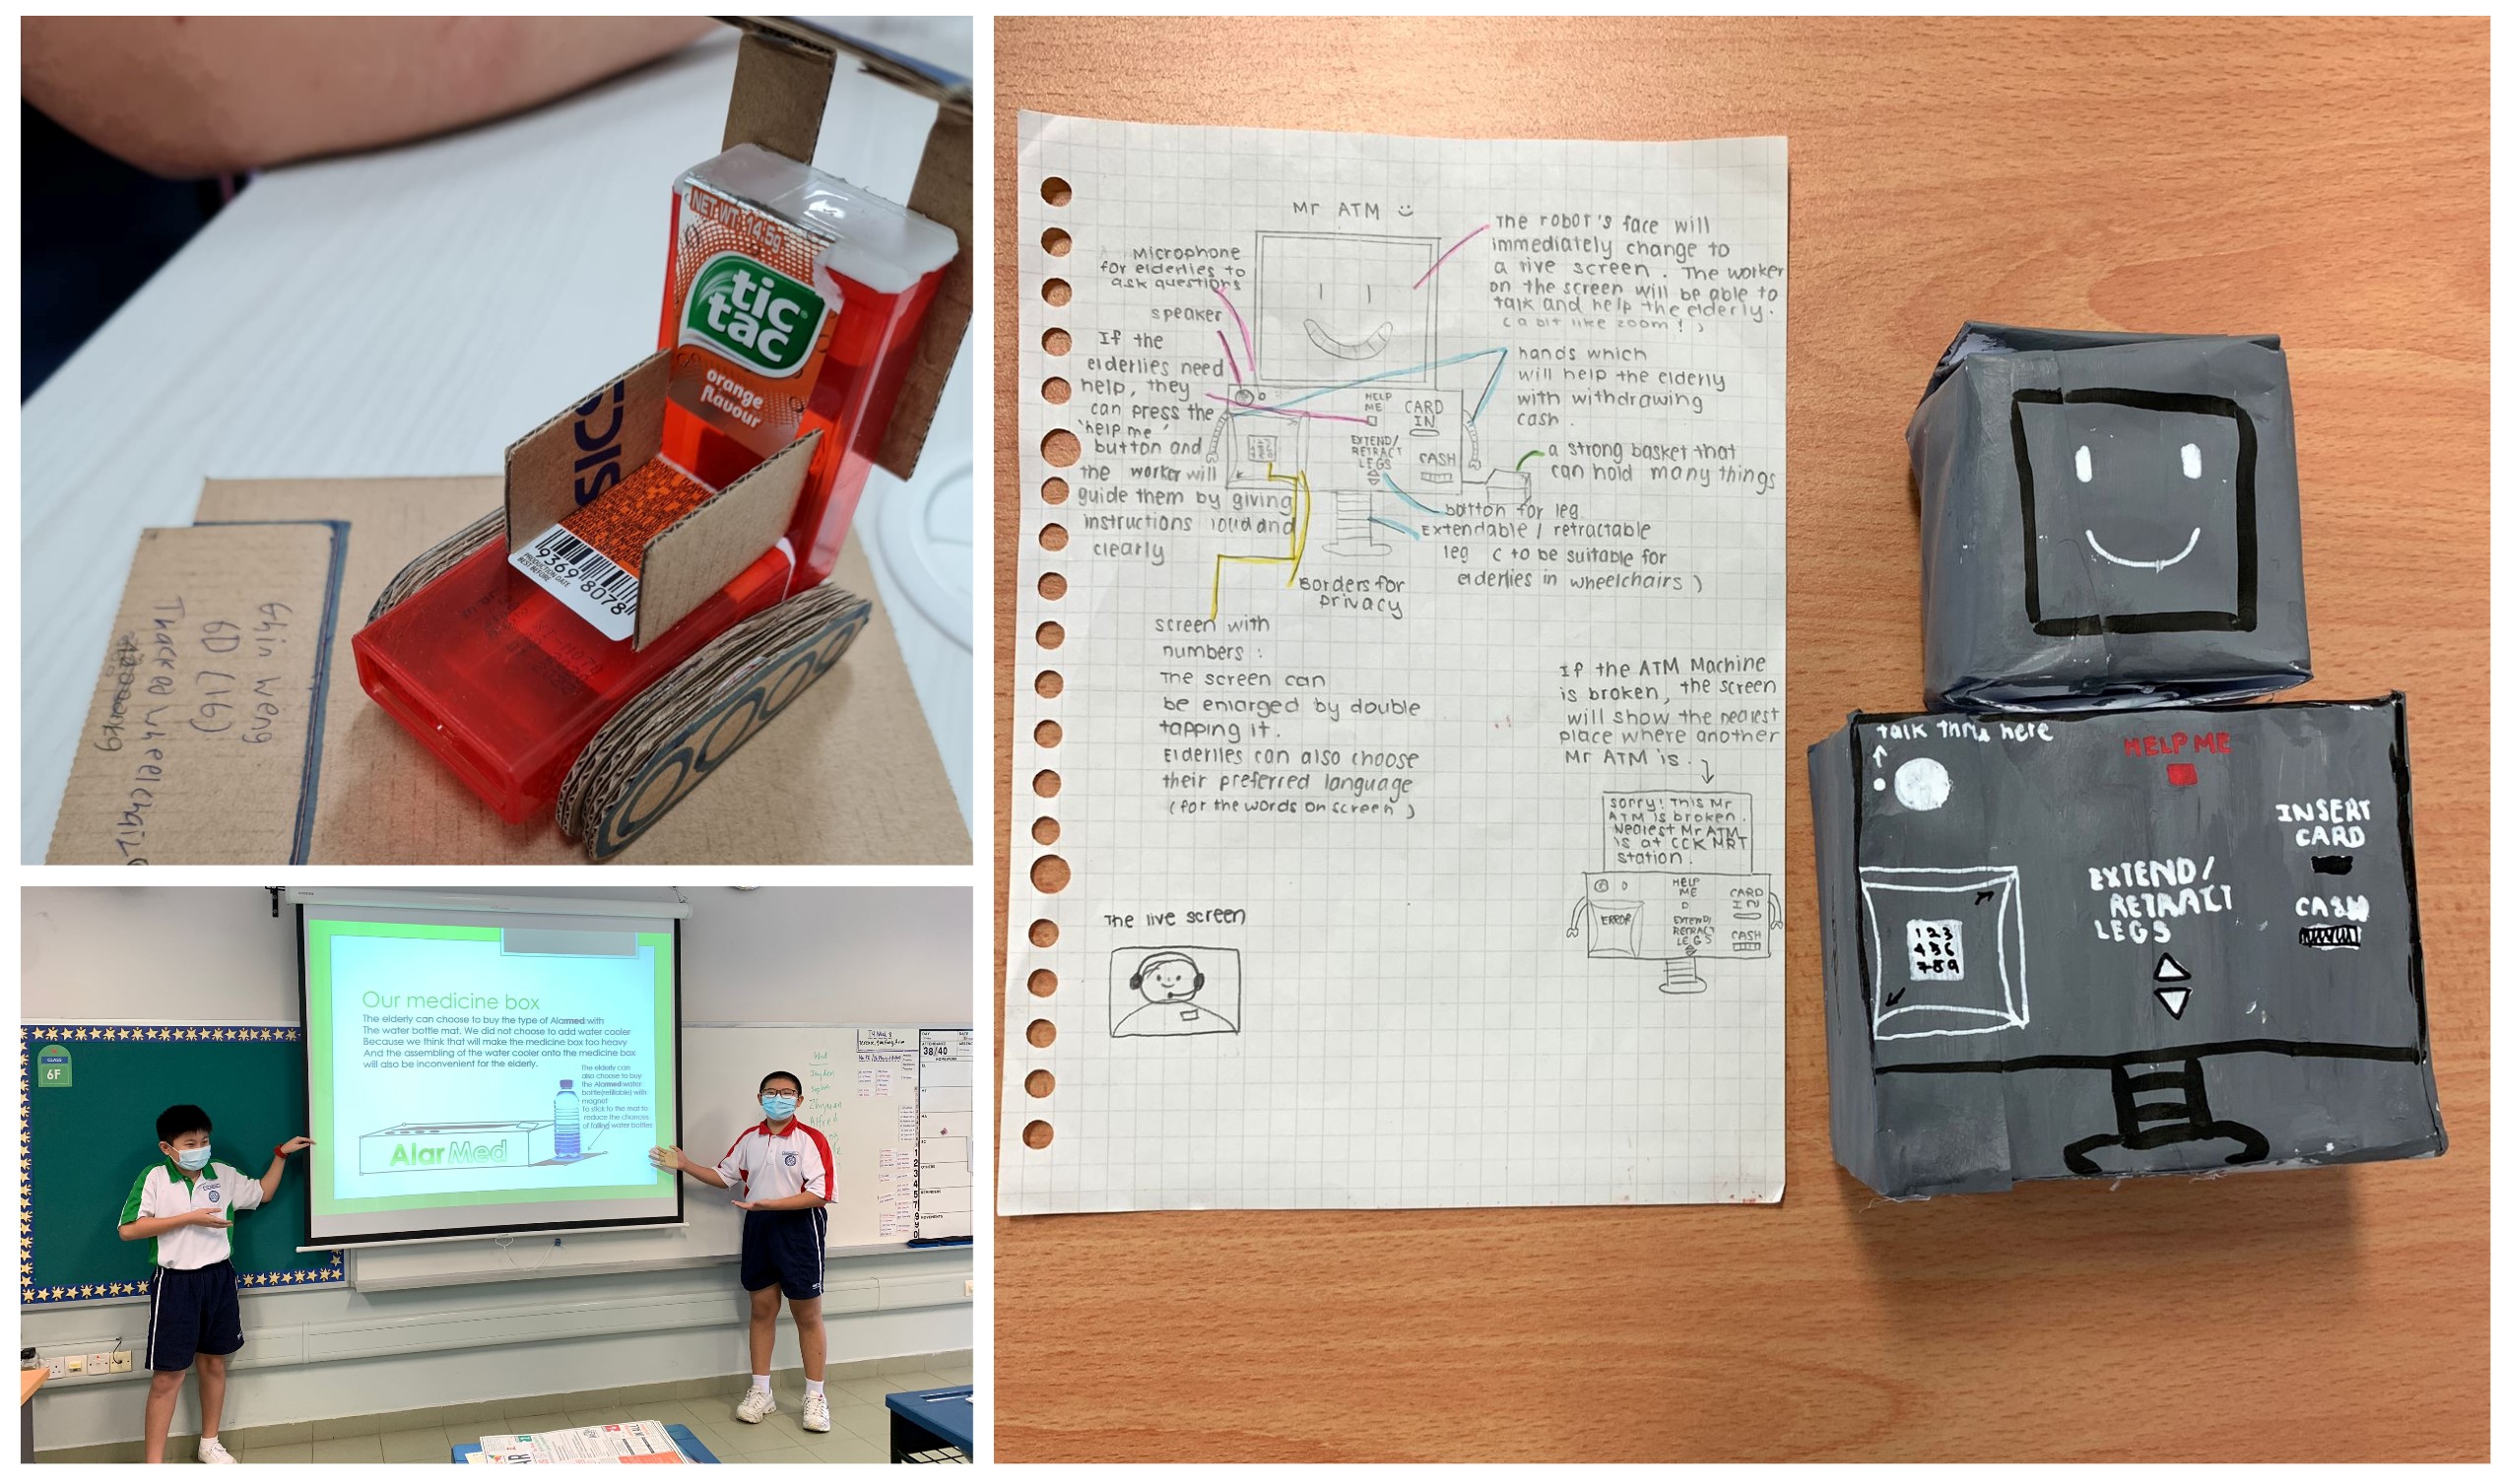 NET WT. 14.5g
tic
tac
orange
flavour
SICS
9369 8078
PRODUCTION DATE
BEST BEFORE
Ghin Weng
6D (16)
Tracked Wheelchair
Our medicine box
The elderly can choose to buy the type of Alarmed with
The water bottle mat. We did not choose to add water cooler
Because we think that will make the medicine box too heavy
And the assembling of the water cooler onto the medicine box
will also be inconvenient for the elderly.
The elderly can
also choose to buy
the Alarmed water
bottle(refillable) with
magnet
To stick to the mat to
reduce the chances
of falling water bottles
AlarMed
CLASS
6F
38/40
Mr ATM
Microphone
for elderlies to
ask questions
speaker
If the
elderlies need
help, they
can press the
'help me'
button and
the worker will
guide them by giving
instructions loud and
clearly
The robot's face will
immediately change to
a live screen. The worker
on the screen will be able to
talk and help the elderly.
(a bit like zoom!)
hands which
will help the elderly
with withdrawing
cash.
a strong basket that
can hold many things
button for leg
Extendable / retractable
leg (to be suitable for
elderlies in wheelchairs)
Borders for
privacy
HELP
ME
CARD
IN
EXTEND/
RETRACT
LEGS
CASH
screen with
numbers :
The screen can
be enlarged by double
tapping it.
Elderlies can also choose
their preferred language
(for the words on screen)
If the ATM Machine
is broken, the screen
will show the nearest
place where another
Mr ATM is.
sorry! This Mr
ATM is broken.
Nearest Mr ATM
is at CCK MRT
station.
HELP
ME
CARD
IN
ERROR
EXTEND/
RETRACT
LEGS
CASH
The live screen
talk thru here
HELP ME
INSERT
CARD
EXTEND/
RETRACT
LEGS
CASH
1 2 3
4 5 6
7 8 9